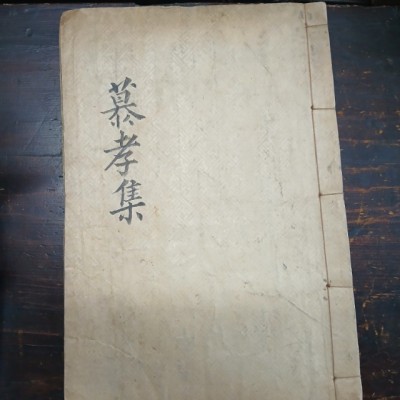 慕孝集